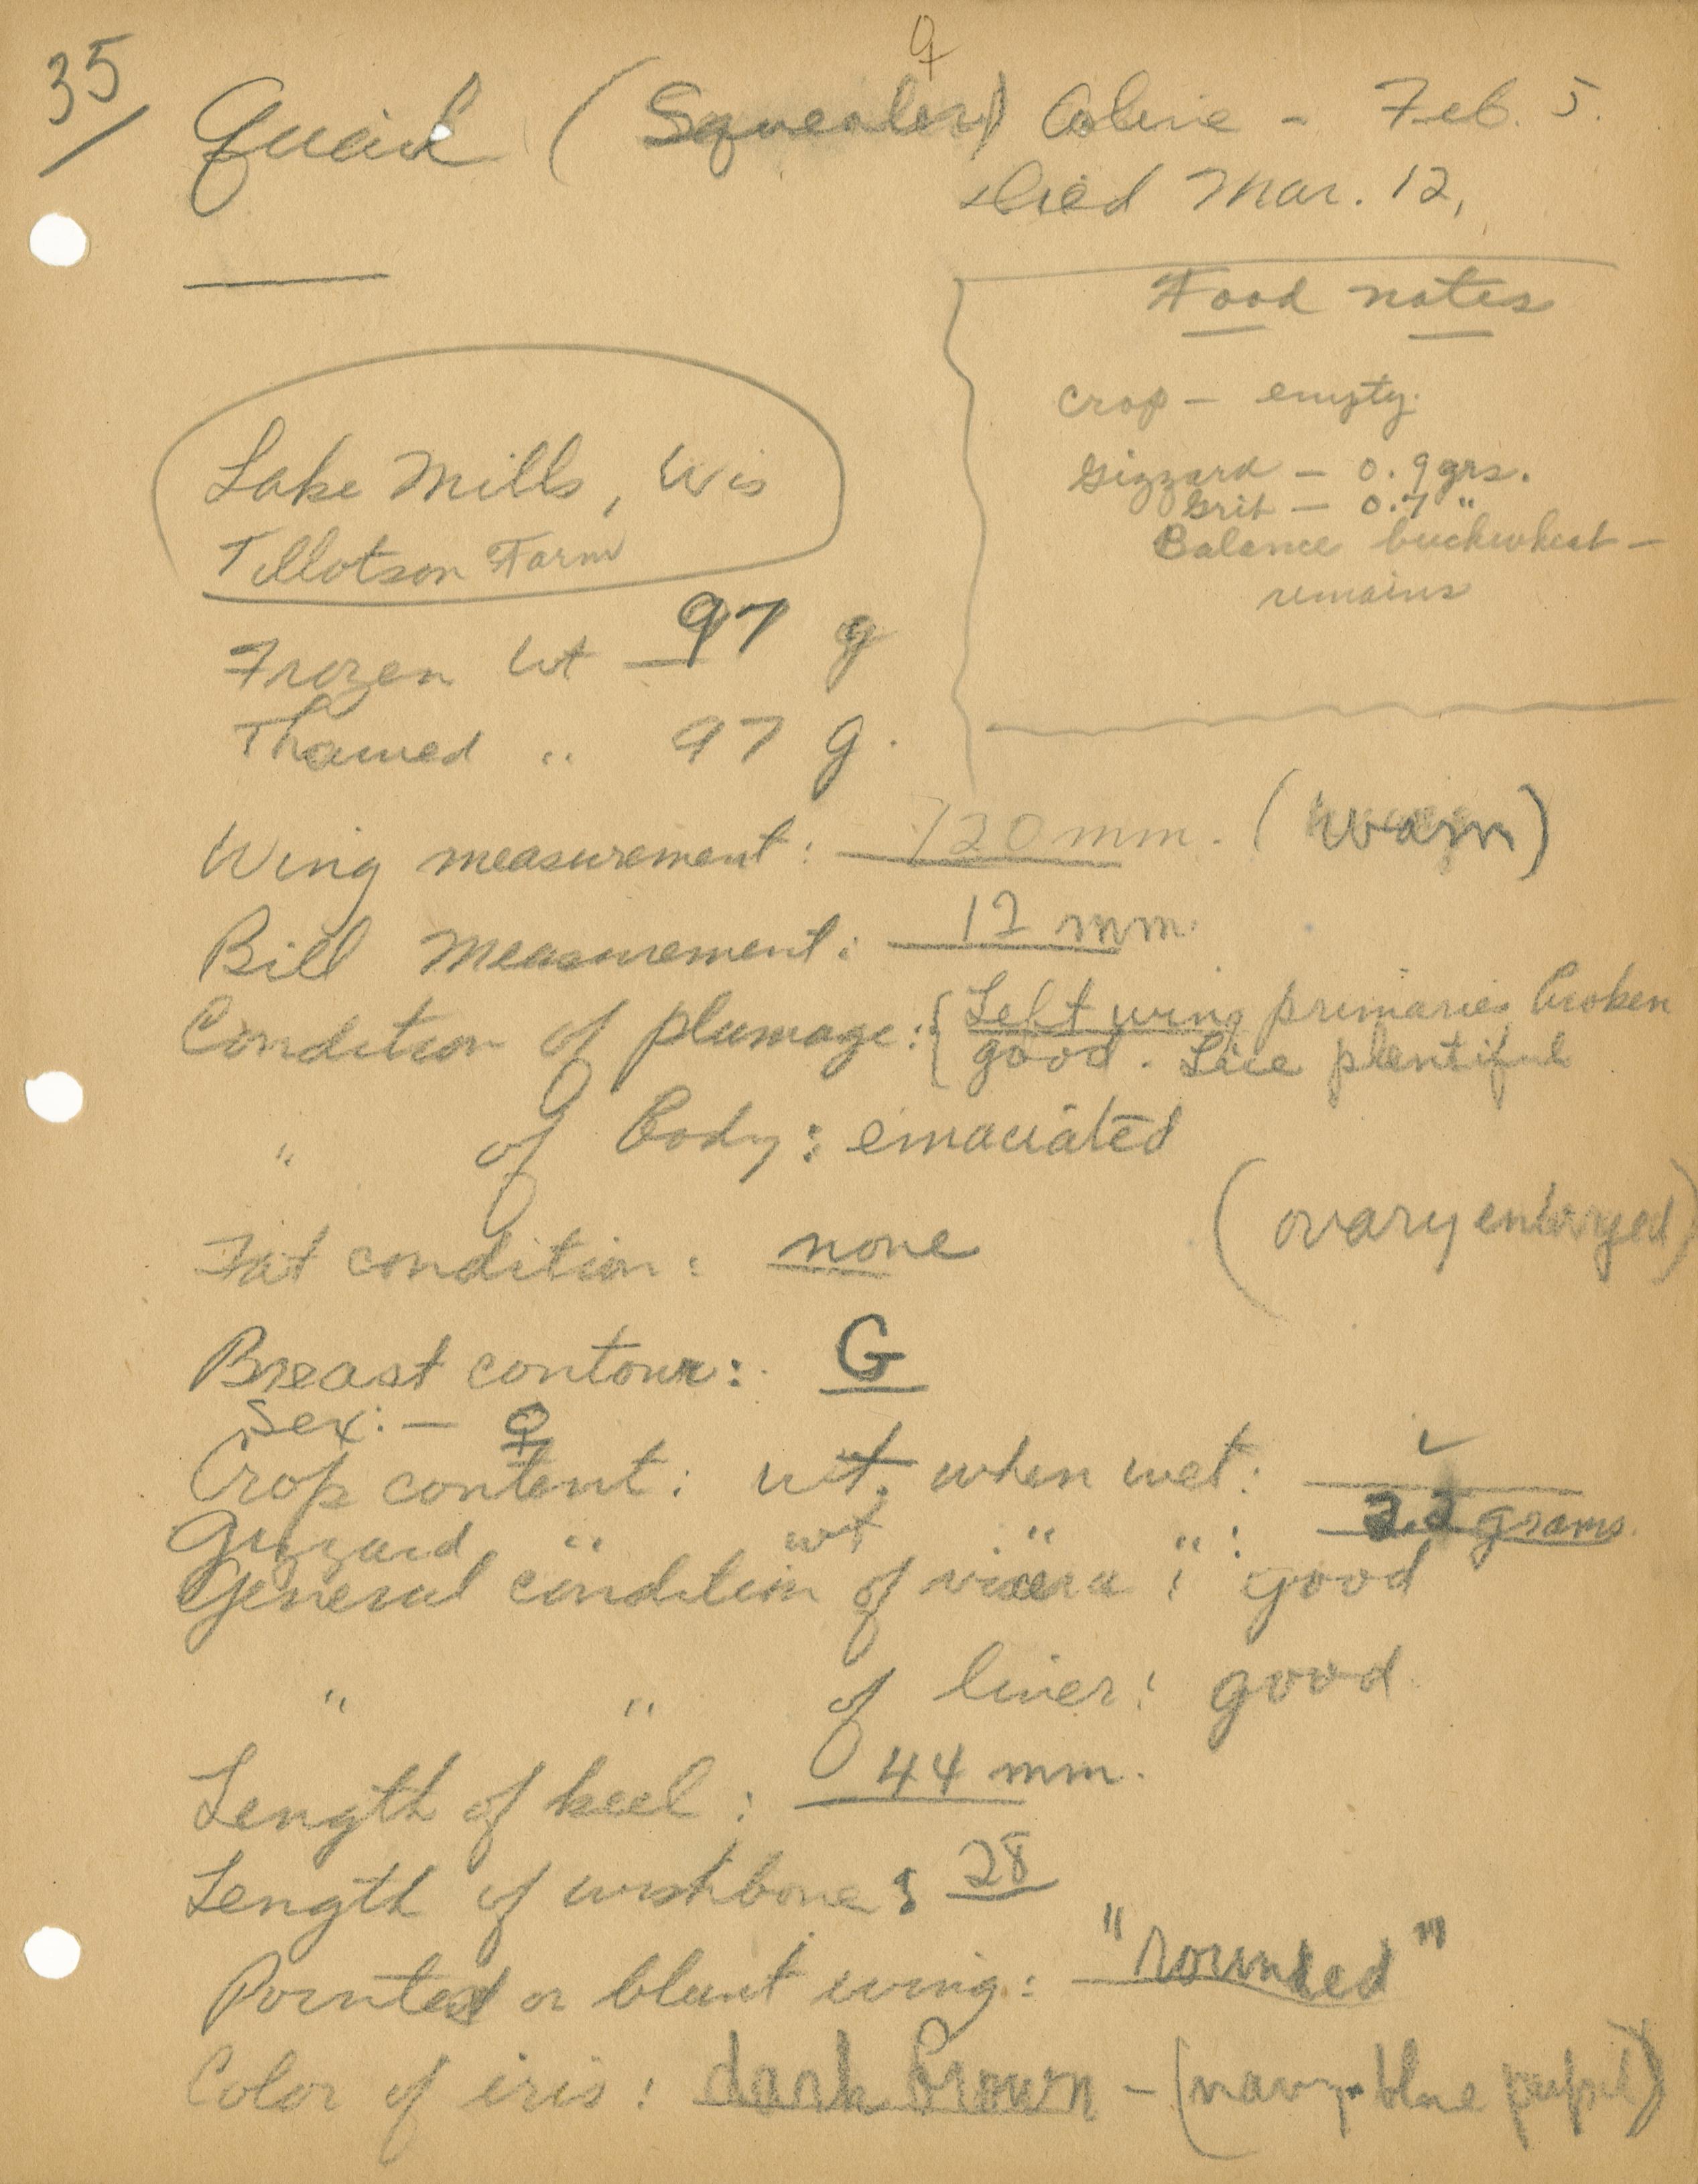 35/
♀
Quail (Squealer) Alive - Feb. 5.
Died Mar. 12,
Food notes
crop - empty.
Gizzard - 0.9 grs.
Grit - 0.7 "
Balance buckwheat -
remains
Lake Mills, Wis
Tillotson Farm
Frozen Wt 97 g
Thawed " 97 g.
Wing measurement: 120 mm. (worn)
Bill Measurement: 12 mm.
Condition of plumage: { Left wing primaries broken
good. Lice plentiful
" of Body: emaciated
(ovary enlarged)
Fat condition: none
Breast contour: G
Sex: - ♀
Crop content: wt. when wet: ✓
Gizzard " wt " ": 2.2 grams.
General condition of viscera: good
" " of liver: good
Length of keel: 44 mm.
Length of wishbone: 28
Pointed or blunt wing: "rounded"
Color of iris: dark brown - (navy-blue pupil)